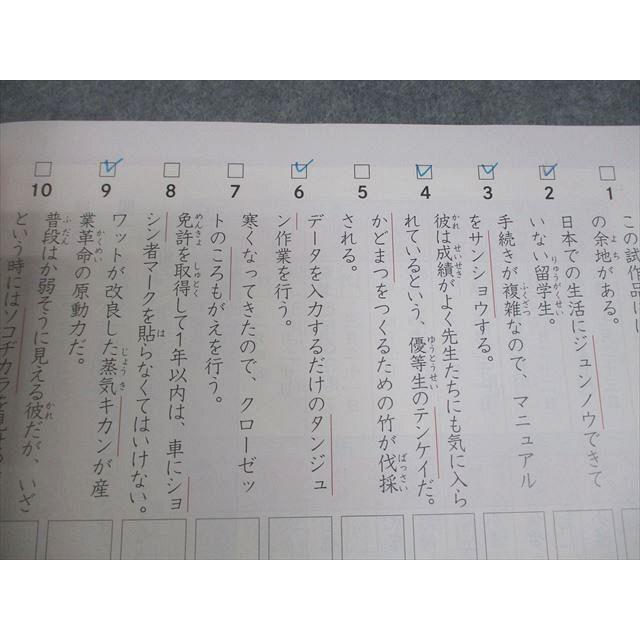 1
この試作品に
の余地がある。
2
日本での生活にジュンノウできて
いない留学生。
3
手続きが複雑なので、マニュアル
をサンショウする。
4
彼は成績がよく先生たちにも気に入ら
れているという、優等生のテンケイだ。
5
かどまつをつくるための竹が伐採
される。
6
データを入力するだけのタンジュ
ン作業を行う。
7
寒くなってきたので、クローゼッ
トのころもがえを行う。
8
免許を取得して1年以内は、車にショ
シン者マークを貼らなくてはいけない。
9
ワットが改良した蒸気キカンが産
業革命の原動力だ。
10
普段はか弱そうに見える彼だが、いざ
という時にはソコヂカラを